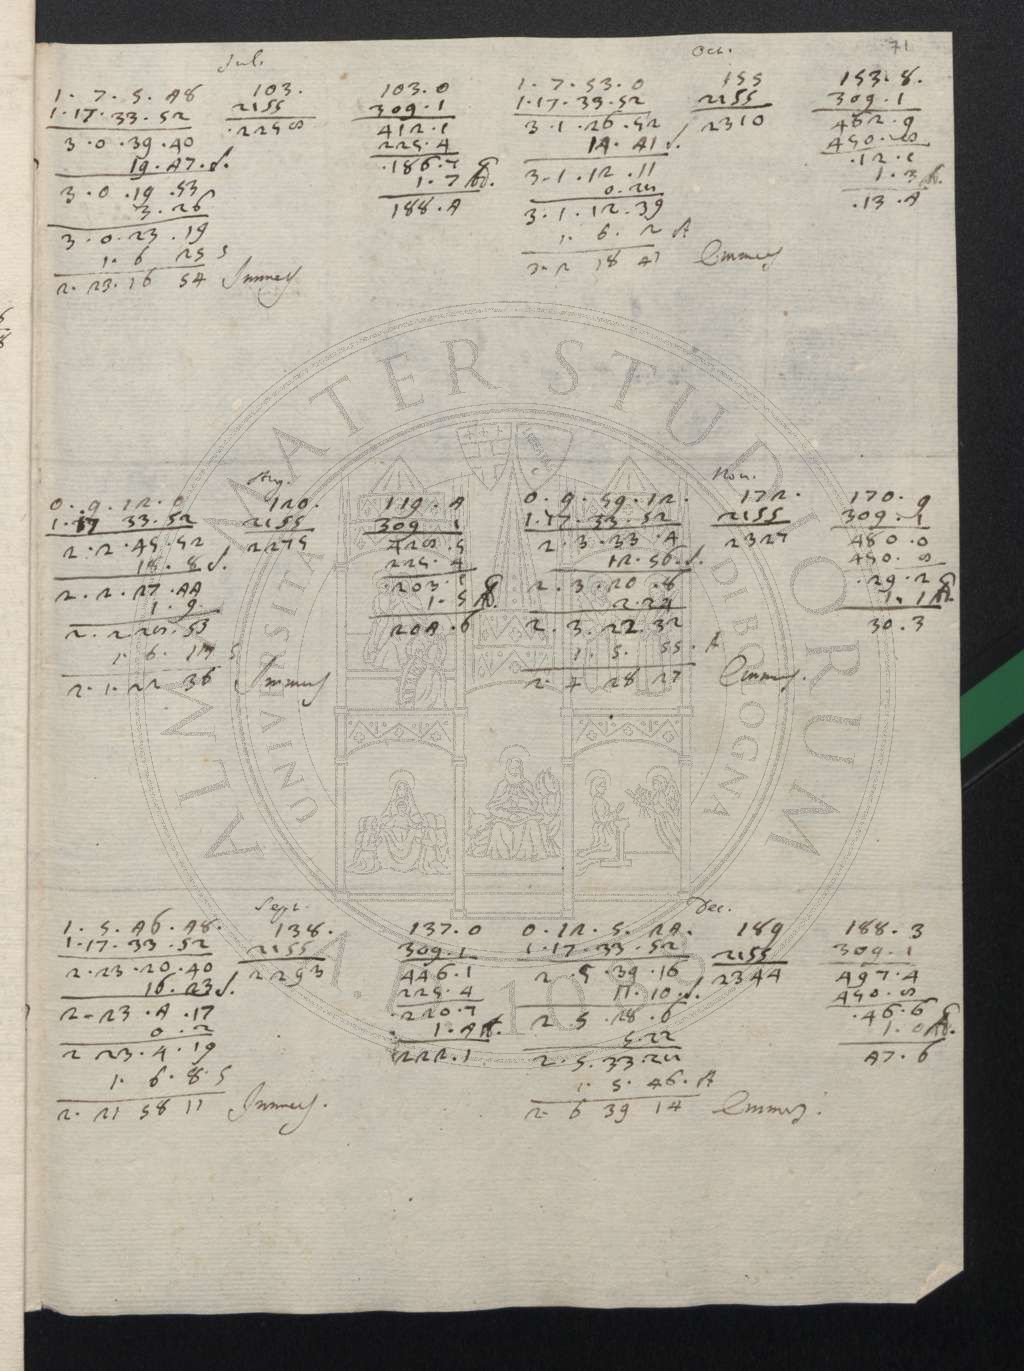 71
Jul.
1. 7. 5. 48
1. 17. 33. 52
3. 0. 39. 40
19. 47. S.
3. 0. 19. 53
3. 26
3. 0. 23. 19
1. 6 25 S
2. 23. 16 54
103.
2155
2258
103. 0
309. 1
412. 1
225. 4
186. 7
1. 7
188. 4
Oct.
1. 7. 53. 0
1. 17. 33. 52
3. 1. 26. 52
14. 41 S.
3. 1. 12. 11
0. 28
3. 1. 12. 39
1. 6. 2 A
2 18 41
155
2155
2310
153. 8.
309. 1
462. 9
450. 8
12. 1
1. 3
13. 4
Aug.
0. 9. 12. 0
1. 17 33. 52
2. 2. 45. 52
18. 8 S.
2. 2. 27. 44
1. 9
2. 2 28. 53
1. 6. 17 S
2. 1. 22 36
120.
2155
2275
119. 4
309 1
428. 5
225. 4
203. 1
1. 5
204. 6
Nou.
0. 9. 59. 12.
1. 17. 33. 52
2. 3. 33. 4
12. 56. S.
2. 3. 20. 8
2. 24
2. 3. 22. 32
1. 5. 55. A
2. 4 28 27
172.
2155
2327
170. 9
309. 1
480. 0
450. 8
29. 2
1. 1
30. 3
Sept.
1. 5. 46. 48.
1. 17. 33. 52
2. 23. 20. 40
16. 23 S.
2. 23. 4. 17
0. 2
2 23. 4. 19
1. 6. 8. S
2. 21 58 11
138.
2155
2293
137. 0
309. 1
446. 1
225. 4
220. 7
1. 4
222. 1
Dec.
0. 12. 5. 24.
1. 17. 33. 52
2. 5. 39. 16
11. 10. S.
2 5. 28. 6
5. 22
2. 5. 33 28
1. 5. 46. A
2. 6 39 14
189
2155
2344
188. 3
309. 1
497. 4
450. 8
46. 6
1. 0
47. 6
ALMA MATER STUDIORUM
UNIVERSITÀ DI BOLOGNA
A.D. 1088